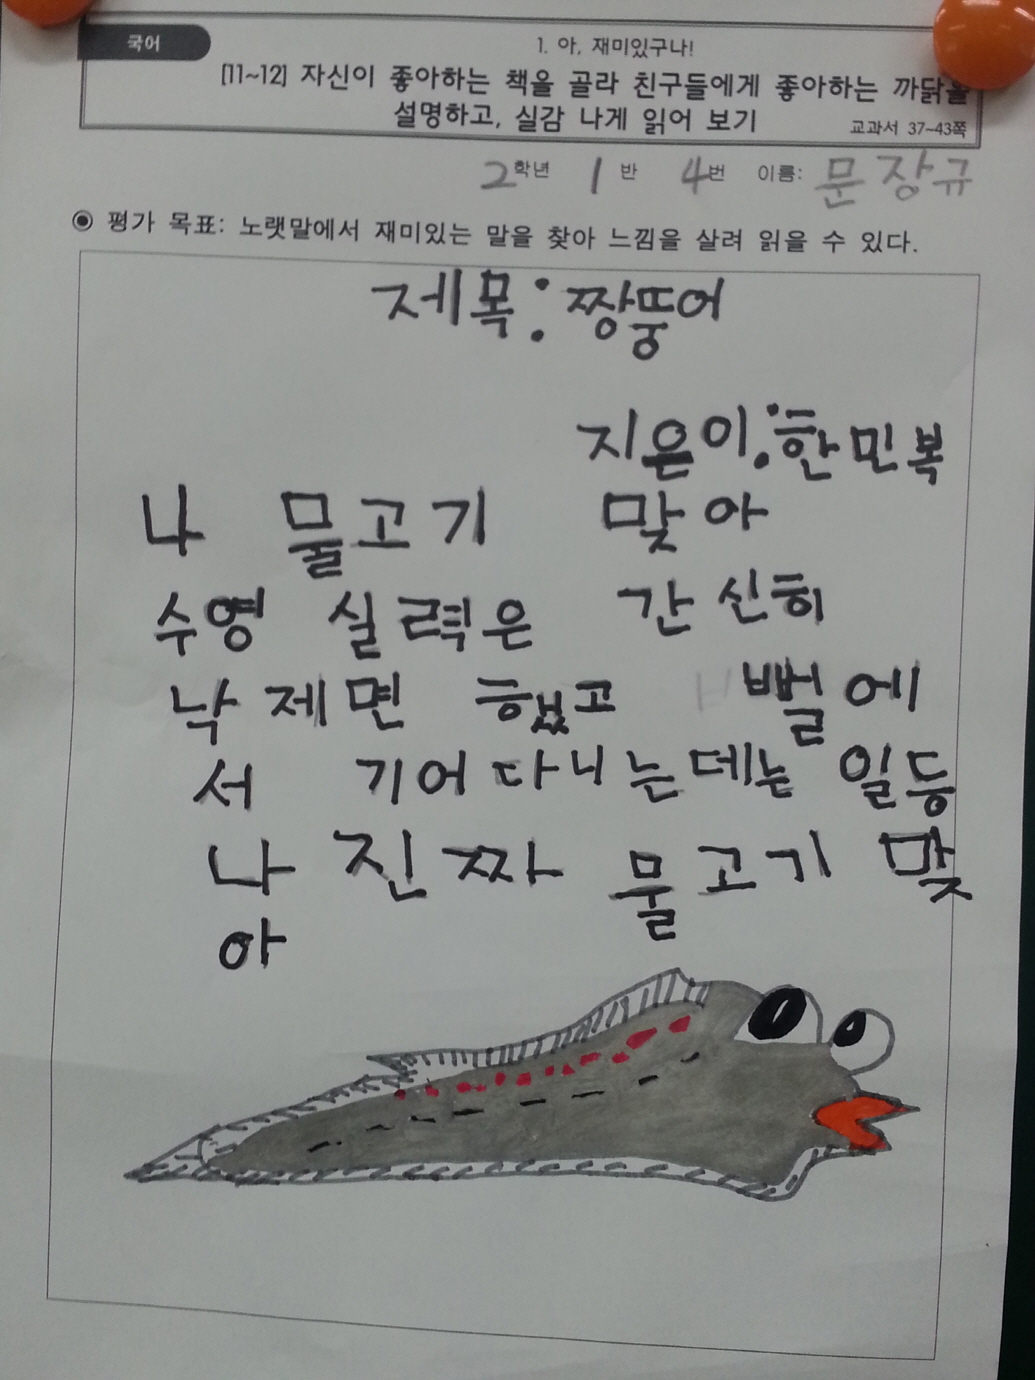 국어
1. 아, 재미있구나!
[11~12] 자신이 좋아하는 책을 골라 친구들에게 좋아하는 까닭을
설명하고, 실감 나게 읽어 보기
교과서 37~43쪽
2학년 1반 4번 이름: 문장규
◉ 평가 목표: 노랫말에서 재미있는 말을 찾아 느낌을 살려 읽을 수 있다.
제목: 짱뚱어
지은이: 한민복
나 물고기 맞아
수영 실력은 간신히
낙제면 했고 뻘에
서 기어다니는데는 일등
나 진짜 물고기 맞
아